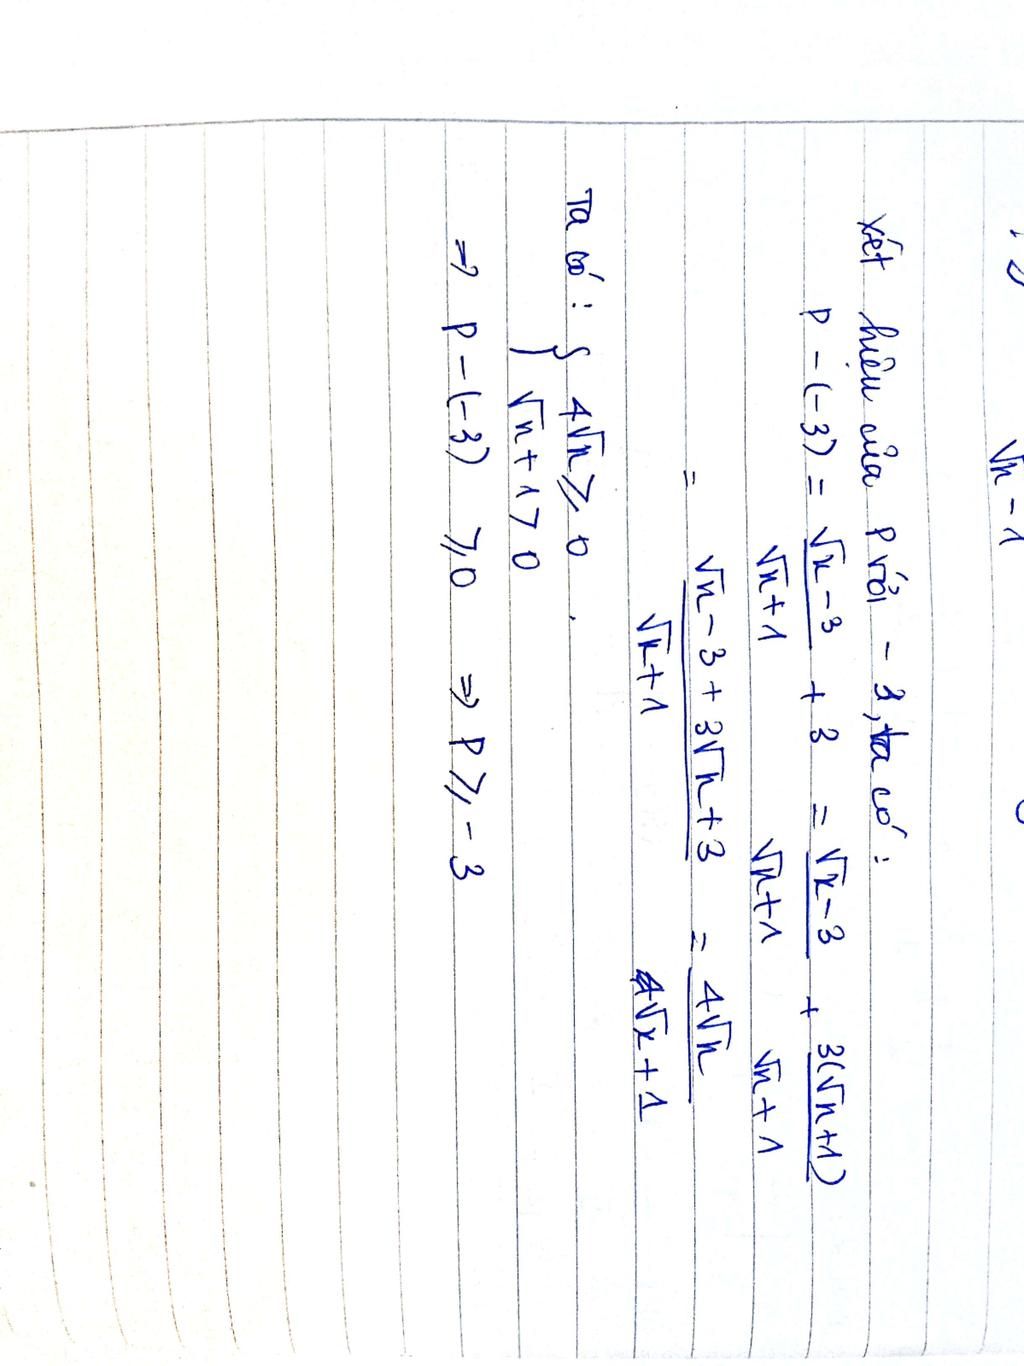 √x - 1
Xét hiệu của P với - 3, ta có :
P - (-3) = (√x - 3)/(√x + 1) + 3 = (√x - 3)/(√x + 1) + 3(√x + 1)/(√x + 1)
= (√x - 3 + 3√x + 3)/(√x + 1) = 4√x/(4√x + 1)
Ta có : { 4√x ⩾ 0
√x + 1 > 0
⇒ P - (-3) ⩾ 0 ⇒ P ⩾ - 3